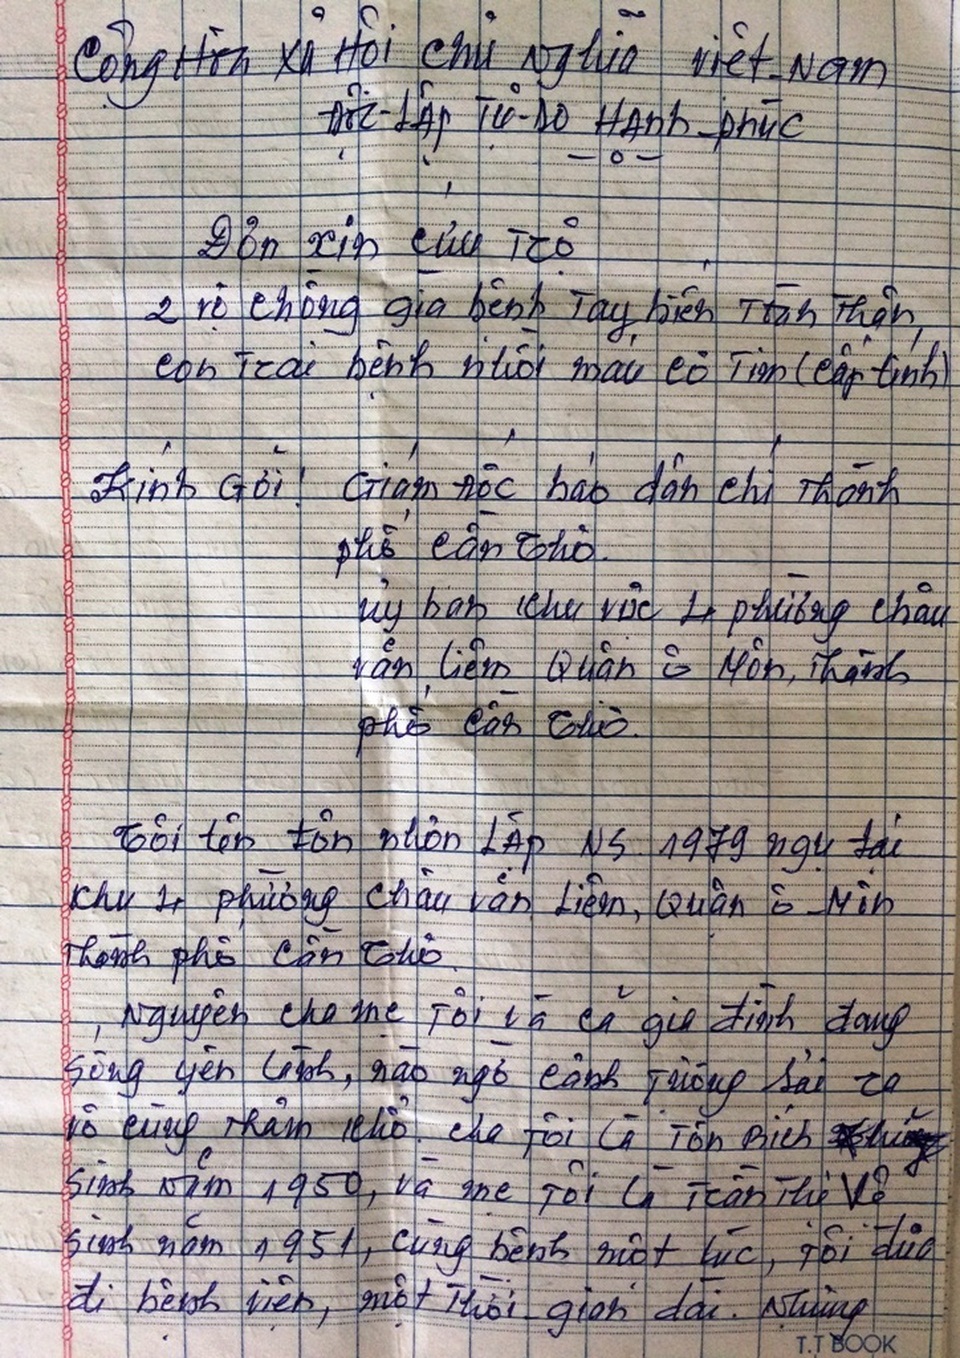 Cộng Hòa Xã Hội Chủ Nghĩa Việt Nam
Độc-Lập Tự-Do Hạnh-phúc
-o-
Đơn xin cứu Trợ
2 vợ chồng già bệnh Tay biến Thần,
con Trai bệnh nhồi máu cơ Tim (cấp tính)
Kính Gởi! Giám đốc báo dân chí Thành
phố Cần Thơ.
ủy ban khu vực 4 phường châu
văn liêm Quận ô Môn, Thành
phố Cần Thơ.
Tôi tên tôn nhơn Lập NS 1979 ngụ tại
khu 4 phường Châu văn Liêm, Quận ô-Môn
Thành phố Cần Thơ.
Nguyên cha mẹ Tôi và cả gia đình đang
Sống yên lành, nào ngờ cảnh Tượng lại ra
vô cùng Thảm khổ. Cha Tôi là Tôn
Sinh Năm 1950, và mẹ Tôi là Trần Thị Về
Sinh năm 1951, cùng bệnh một lúc, Tôi đưa
đi bệnh viện, một Thời gian dài. Nhưng
T.T BOOK